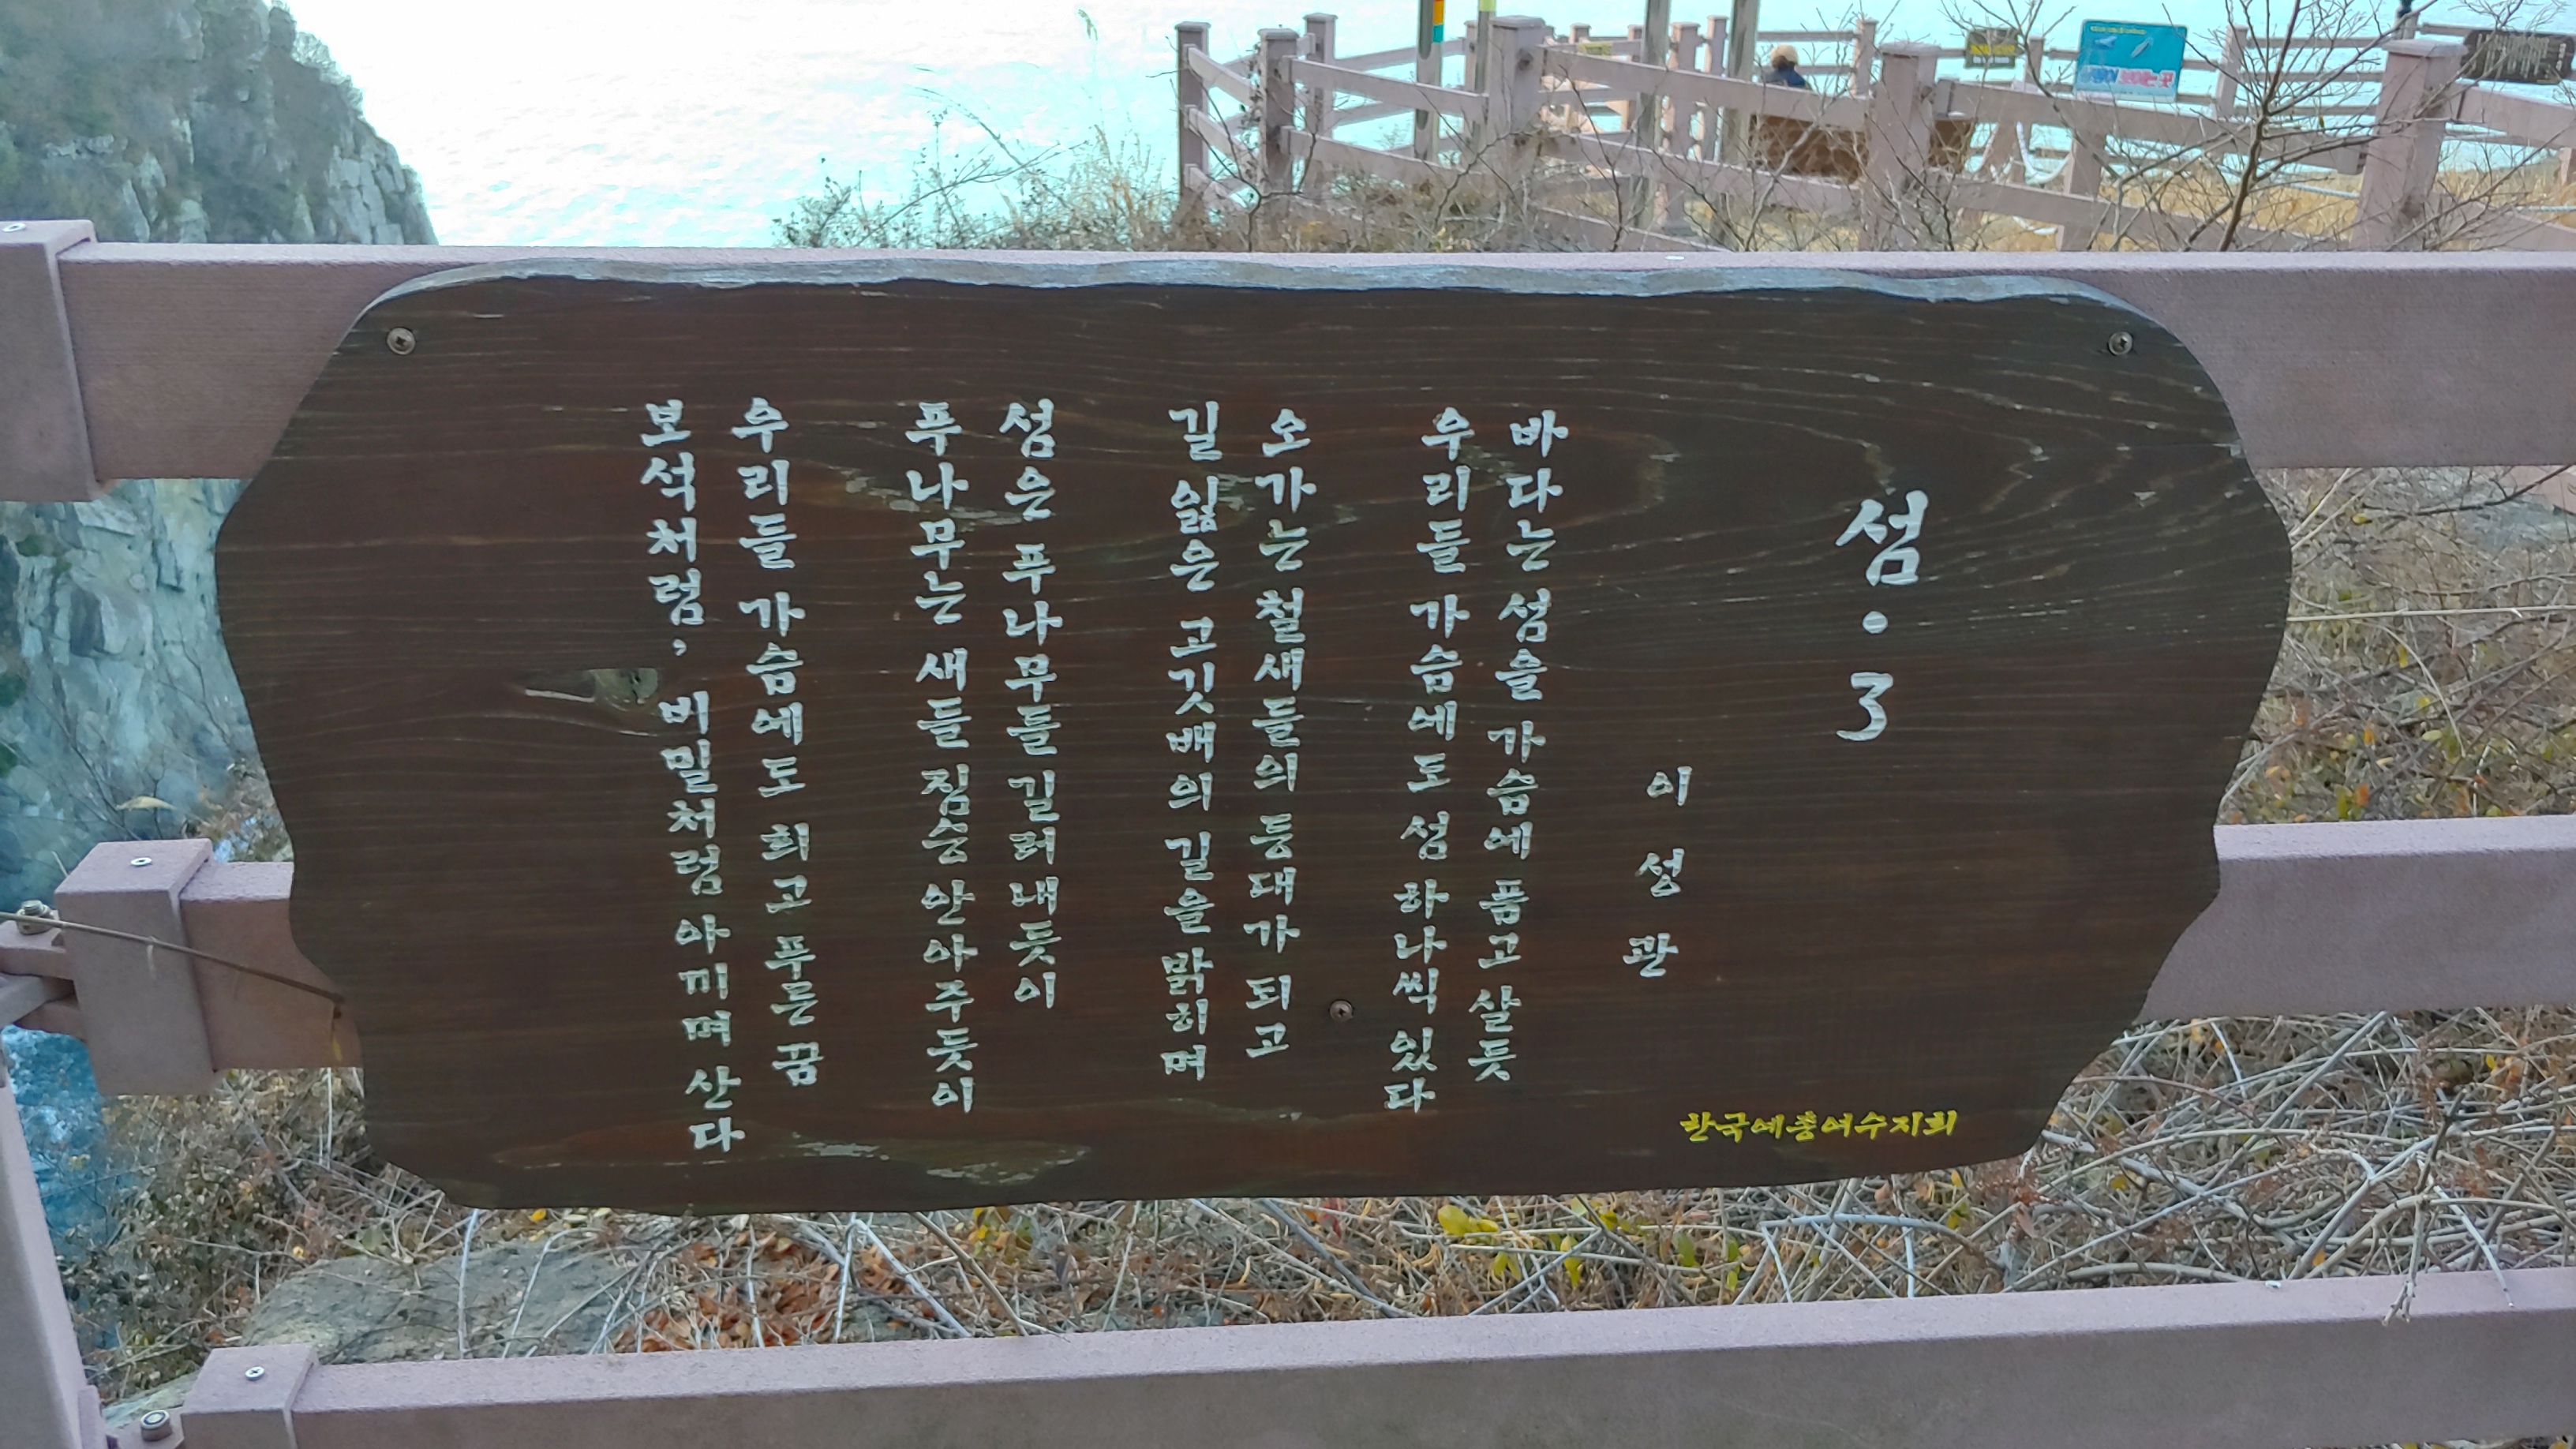 섬·3
이성관
바다는 섬을 가슴에 품고 살듯
우리들 가슴에도 섬 하나씩 있다
오가는 철새들의 등대가 되고
길 잃은 고깃배의 길을 밝히며
섬은 푸나무들 길러내듯이
푸나무는 새들 짐승 안아주듯이
우리들 가슴에도 희고 푸른 꿈
보석처럼, 비밀처럼 아끼며 산다
한국예총여수지회